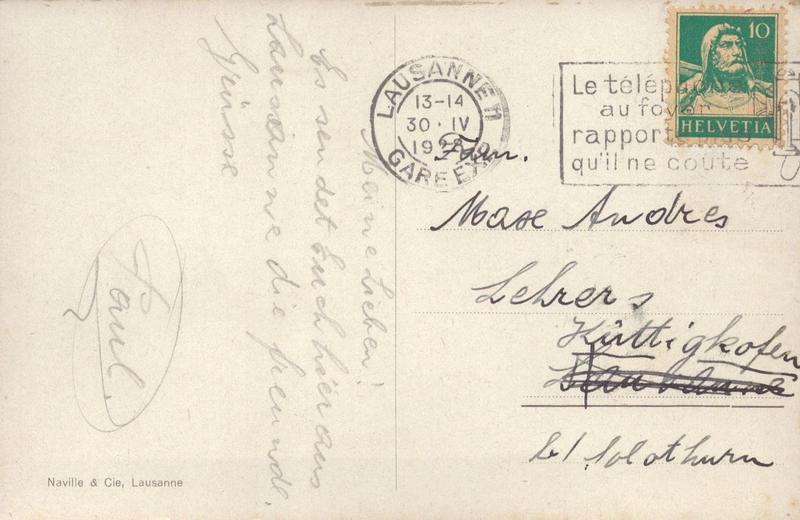 Meine Lieben!
Es sendet Euch hier aus
Lausanne die freundl.
Grüsse
Paul.
Naville & Cie, Lausanne
LAUSANNE
13-14
30. IV
1928
GARE EXP
Le télép
au foyer
rapport
qu'il ne coûte
10
HELVETIA
Fam.
Max Andres
Lehrers
Küttigkofen
b/ Solothurn